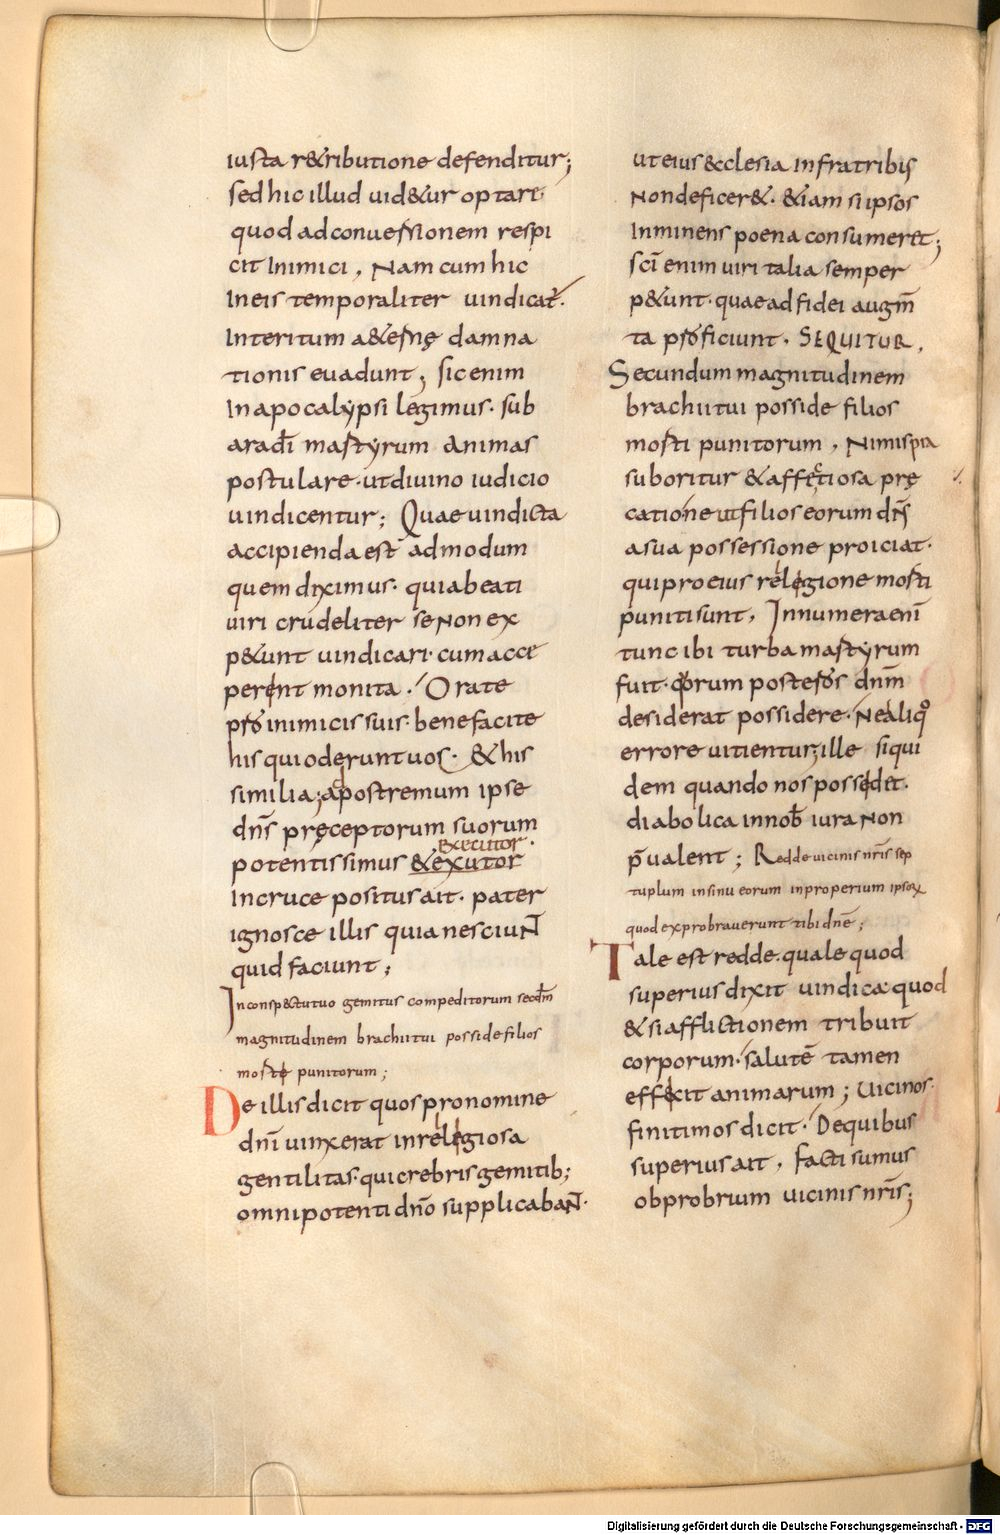 iusta r&ributione defenditur;
sed hic illud uid&ur optari·
quod ad conuersionem respi
cit Inimici, Nam cum hic
In eis temporaliter uindicat̄·
Interitum a&ernę damna
tionis euadunt; sic enim
In apocalypsi legimus· sub
aradī martyrum animas
postulare· ut diuino iudicio
uindicentur; Quae uindicta
accipienda est ad modum
quem diximus· quia beati
uiri crudeliter se Non ex
p&unt uindicari· cum acce
perint monita· Orate
pro inimicis suis· benefacite
his qui oderunt uos· & his
similia; ad postremum ipse
dn̄s pręceptorum suorum
executor·
potentissimus &exutor
In cruce positus ait· pater
ignosce illis quia nesciuN̄
quid faciunt;
In consp&u tuo gemitus compeditorum secdm̄
magnitudinem brachii tui posside filios
morte punitorum;
De illis dicit quos pro nomine
dnī uinxerat inreligiosa
gentilitas· qui crebris gemitib;
omnipotenti dnō supplicabaN̄·
ut eius &cclesia In fratribus
Non deficer&· &iam si ipsos
Inminens poena consumeret;
scī enim uiri talia semper
p&unt· quae ad fidei augm̄
ta proficiunt· SEQUITUR,
Secundum magnitudinem
brachii tui posside filios
morti punitorum, Nimis pia
suboritur & affectiosa prę
catione ut filios eorum dn̄s
a sua possessione proiciat·
qui pro eius religione morti
puniti sunt, Innumera enī
tunc ibi turba martyrum
fuit· quorum posteros dnm̄
desiderat possidere· Ne aliqͦ
errore uitientur; ille siqui
dem quando nos possidet·
diabolica in nob̄ iura Non
p̄ualent; Redde uicinis nr̄is sep
tuplum in sinu eorum inproperium ipsorꝝ
quod exprobrauerunt tibi dnē;
Tale est redde· quale quod
superius dixit uindica: quod
& si afflictionem tribuit
corporum· salutē tamen
effecit animarum; Uicinos·
finitimos dicit· De quibus
superius ait, facti sumus
obprobrium uicinis nr̄is;
Digitalisierung gefördert durch die Deutsche Forschungsgemeinschaft - DFG